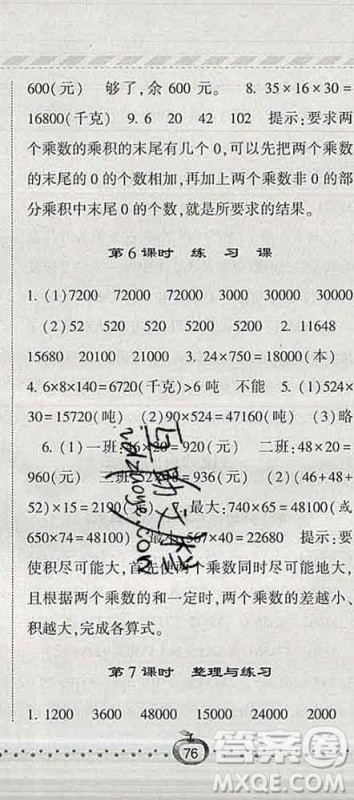 600(元) 够了,余 600 元。 8. 35×16×30=
16800(千克) 9. 6 20 42 102 提示:要求两
个乘数的乘积的末尾有几个 0,可以先把两个
乘数的末尾的 0 的个数相加,再加上两个乘数非 0 的部
分乘积中末尾 0 的个数,就是所要求的结果。
第 6 课时 练 习 课
1. (1)7200 72000 72000 3000 30000 30000
(2)52 520 520 5200 5200 2. 11648
15680 20100 21000 3. 24×750=18000(本)
4. 6×8×140=6720(千克)>6 吨 不能 5. (1)524×
30=15720(吨) (2)90×524=47160(吨) (3)略
6. (1)一班:46×20=920(元) 二班:48×20=
960(元) 三班:52×18=936(元) (2)(46+48+
52)×15=2190(元) 7. 最大:740×65=48100(或
650×74=48100) 最小:567×40=22680 提示:要
使积尽可能大,首先使两个乘数同时尽可能大,
且根据两个乘数的和一定时,两个乘数的差越小、
积越大,完成各算式。
第 7 课时 整理与练习
1. 1200 3600 48000 15000 24000 2000
76
答案圈
MXQE.COM